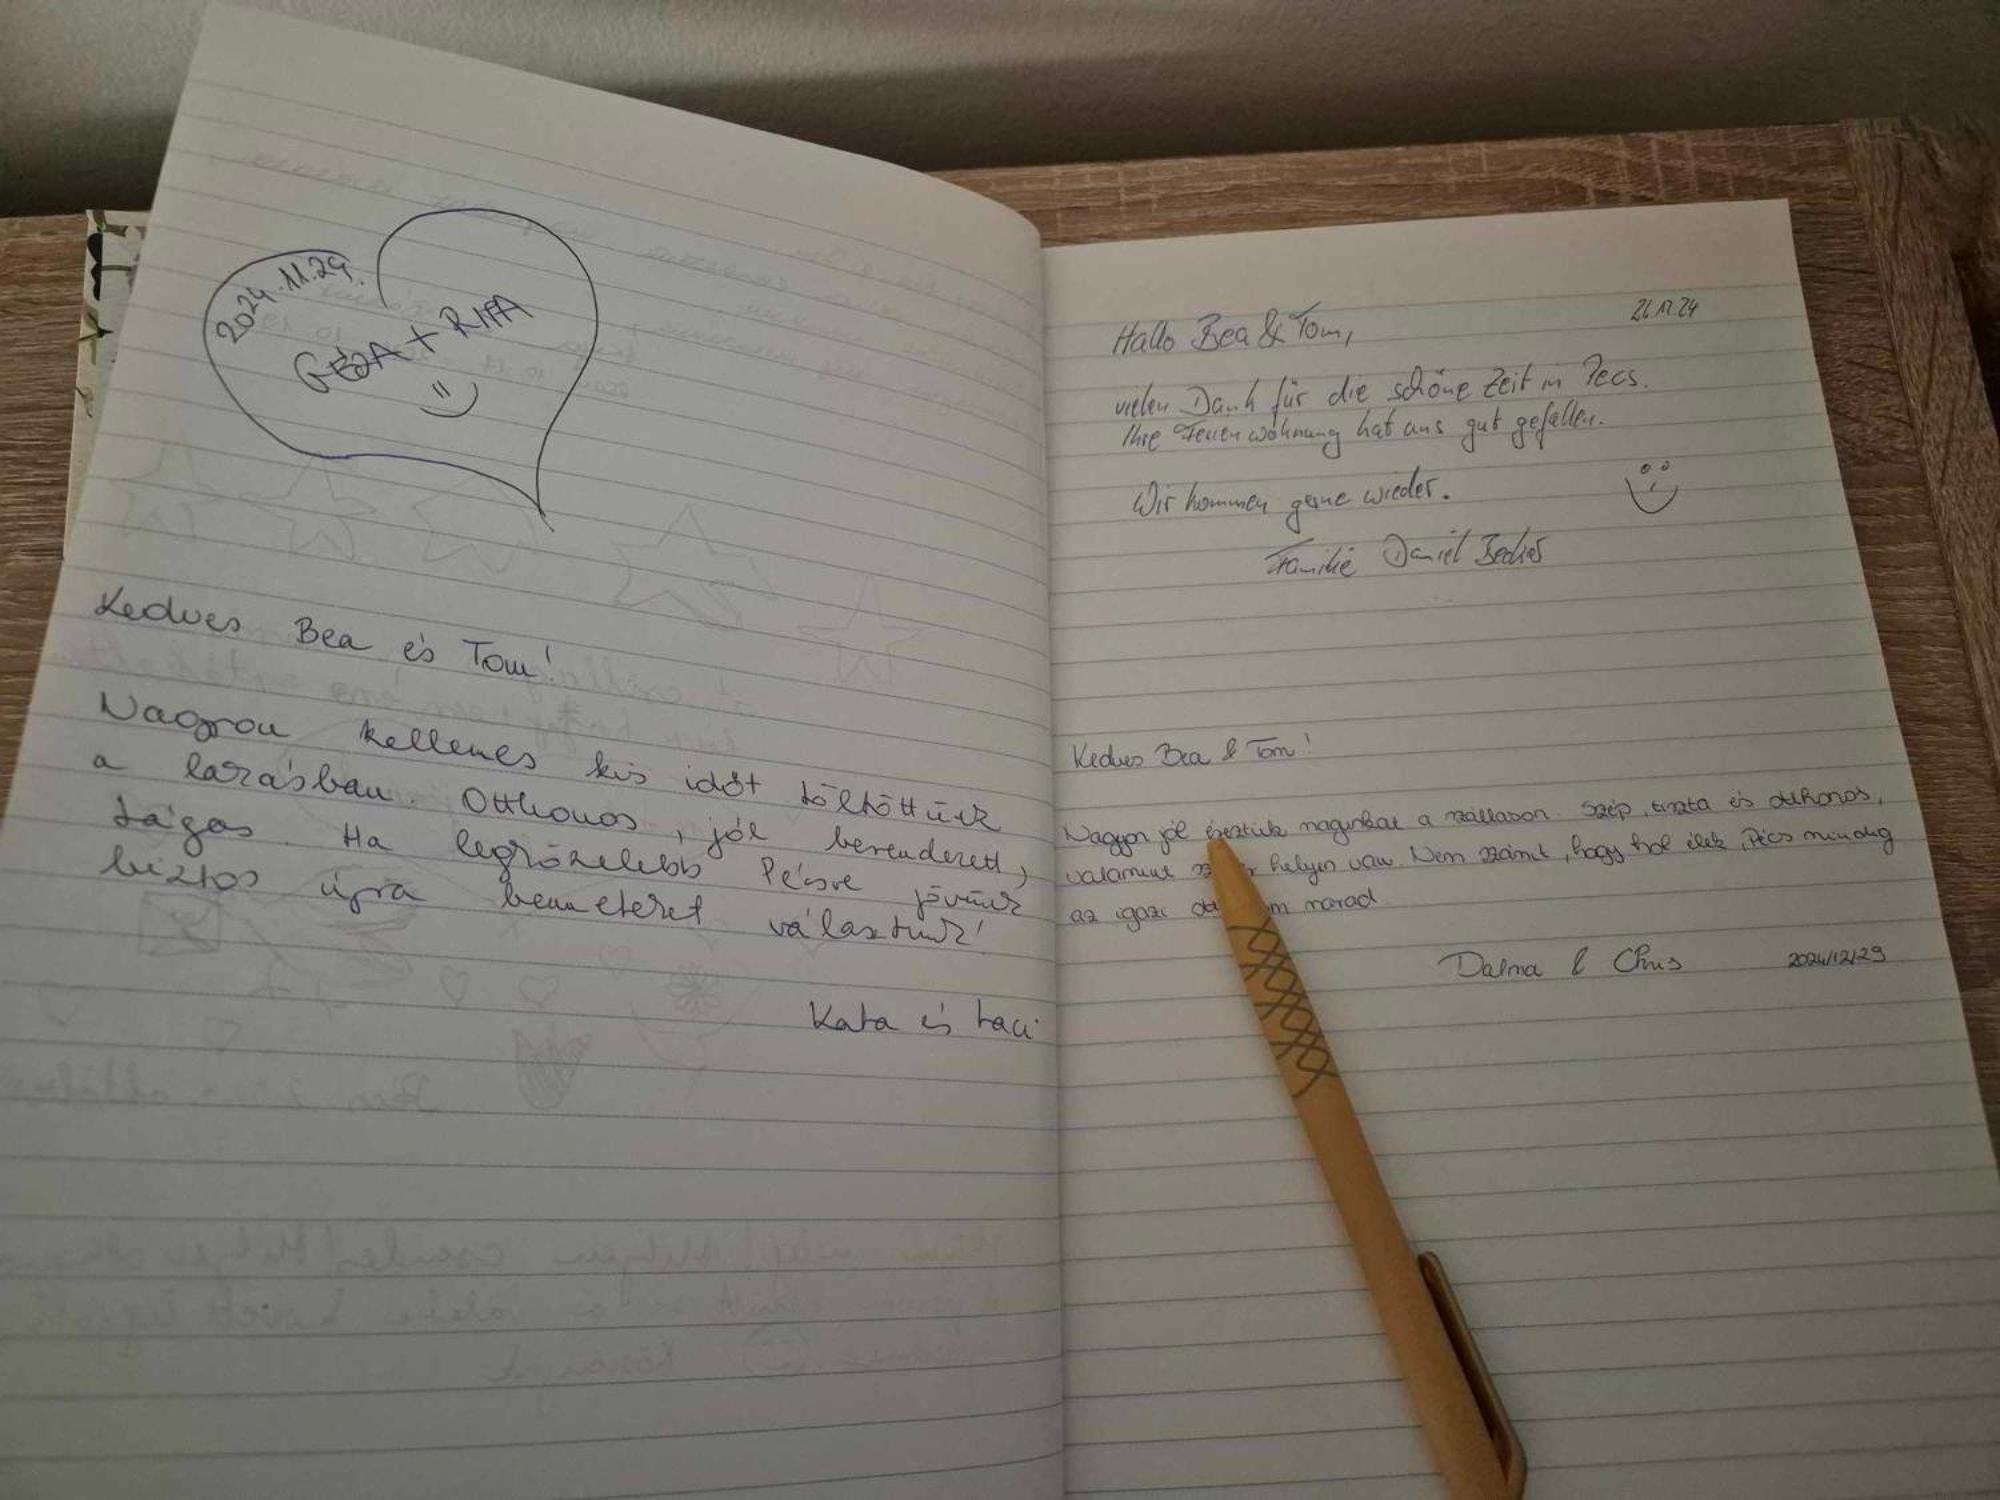 2024.11.29.
GÉZA + RITA
Kedves Bea és Tom!
Nagyon kellemes kis időt töltöttünk
a lakásban. Otthonos, jól berendezett,
tágas. Ha legközelebb Pécsre jövünk
biztos újra benneteket választunk!
Kata és Laci
26.12.24
Hallo Bea & Tom,
vielen Dank für die schöne Zeit in Pecs.
Ihre Ferienwohnung hat uns gut gefallen.
Wir kommen gerne wieder.
Familie Daniel Becker
Kedves Bea & Tom!
Nagyon jól éreztük magunkat a szálláson. Szép, tiszta és otthonos,
valamint helyen van. Nem számít, hogy hol élek, Pécs mindig
az igazi marad
Dalma & Chris 2024/12/29